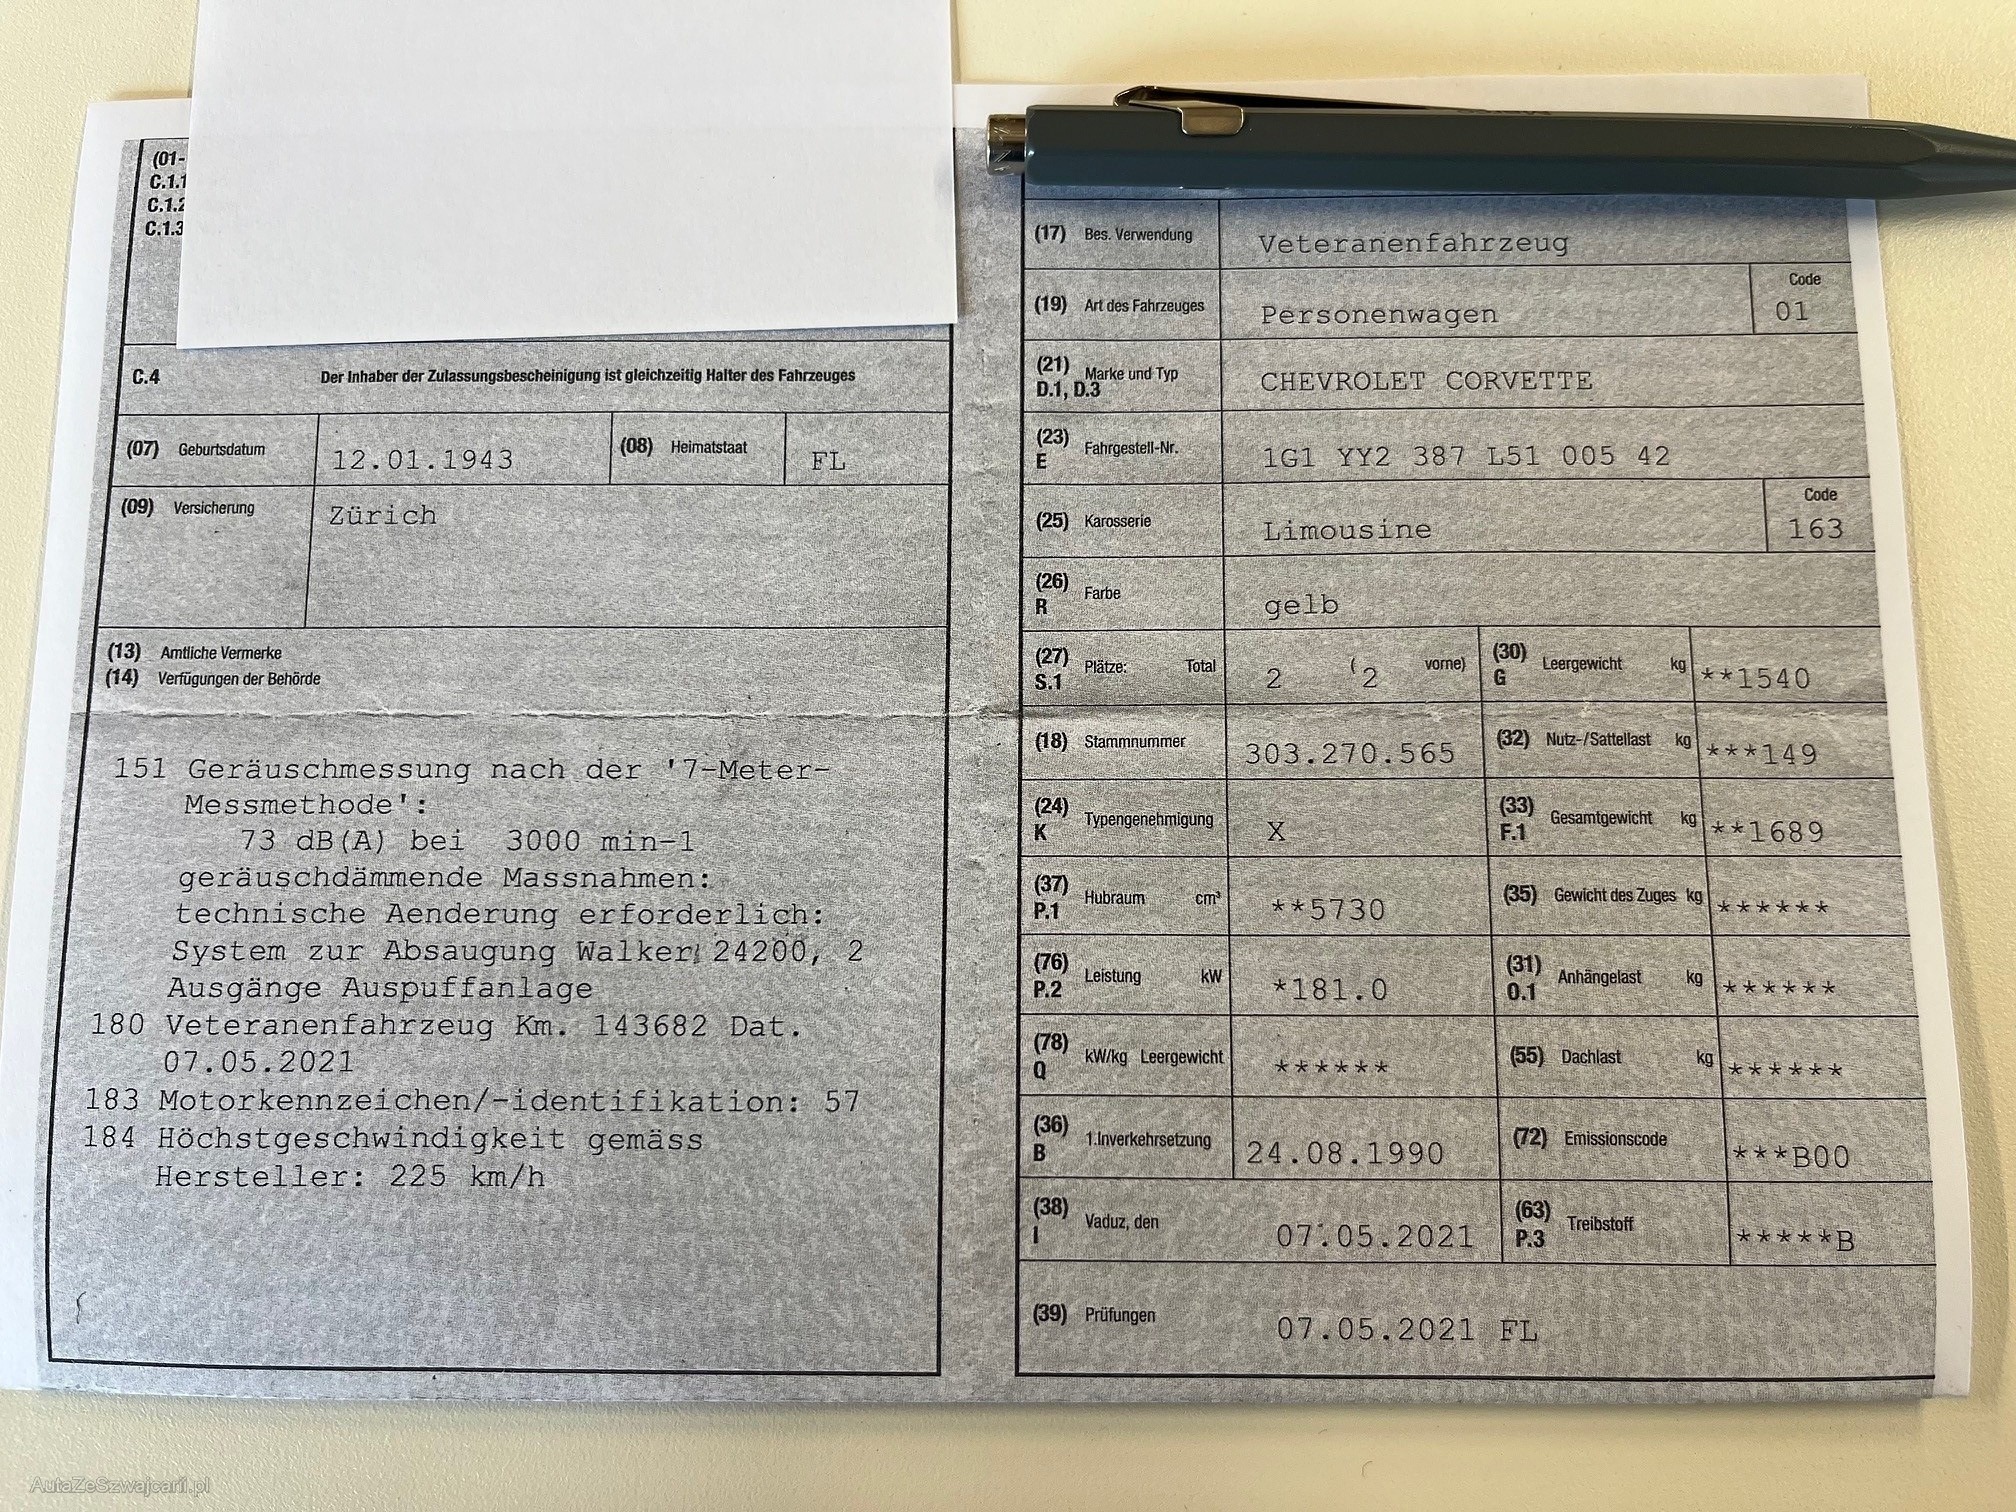 (01-
C.1.1
C.1.2
C.1.3
C.4 Der Inhaber der Zulassungsbescheinigung ist gleichzeitig Halter des Fahrzeuges
(07) Geburtsdatum 12.01.1943 (08) Heimatstaat FL
(09) Versicherung Zürich
(13) Amtliche Vermerke
(14) Verfügungen der Behörde
151 Geräuschmessung nach der '7-Meter-
Messmethode':
73 dB(A) bei 3000 min-1
geräuschdämmende Massnahmen:
technische Aenderung erforderlich:
System zur Absaugung Walker 24200, 2
Ausgänge Auspuffanlage
180 Veteranenfahrzeug Km. 143682 Dat.
07.05.2021
183 Motorkennzeichen/-identifikation: 57
184 Höchstgeschwindigkeit gemäss
Hersteller: 225 km/h
(17) Bes. Verwendung Veteranenfahrzeug
(19) Art des Fahrzeuges Personenwagen Code 01
(21) D.1, D.3 Marke und Typ CHEVROLET CORVETTE
(23) E Fahrgestell-Nr. 1G1 YY2 387 L51 005 42
(25) Karosserie Limousine Code 163
(26) R Farbe gelb
(27) S.1 Plätze: Total 2 ( 2 vorne) (30) G Leergewicht kg **1540
(18) Stammnummer 303.270.565 (32) Nutz-/Sattellast kg ***149
(24) K Typengenehmigung X (33) F.1 Gesamtgewicht kg **1689
(37) P.1 Hubraum cm³ **5730 (35) Gewicht des Zuges kg ******
(76) P.2 Leistung kW *181.0 (31) O.1 Anhängelast kg ******
(78) Q kW/kg Leergewicht ****** (55) Dachlast kg ******
(36) B 1.Inverkehrsetzung 24.08.1990 (72) Emissionscode ***B00
(38) I Vaduz, den 07.05.2021 (63) P.3 Treibstoff *****B
(39) Prüfungen 07.05.2021 FL
AutaZeSzwajcarii.pl